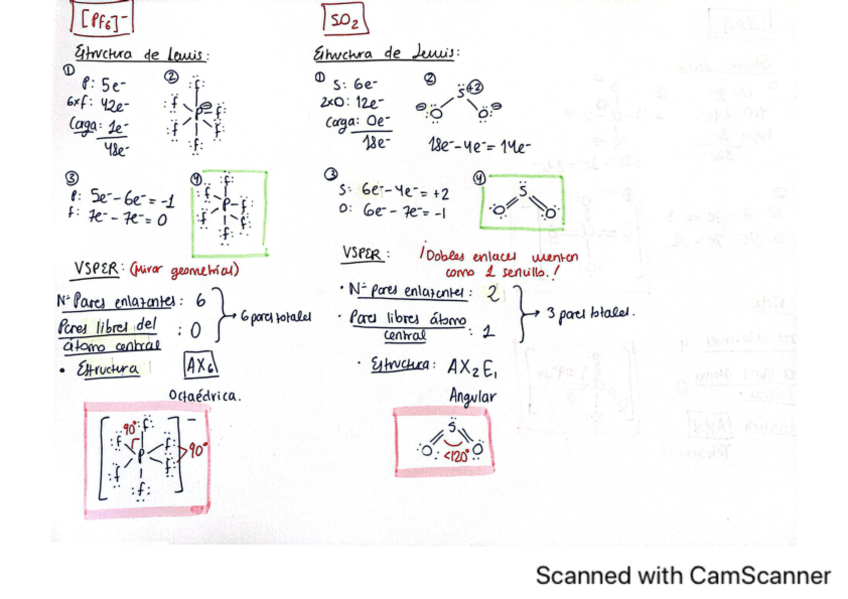 [PF6]⁻
Estructura de Lewis:
①
P: 5e⁻
6xF: 42e⁻
Carga: 1e⁻
48e⁻
②
③
P: 5e⁻-6e⁻=-1
F: 7e⁻-7e⁻=0
④
VSPER: (Mirar geometrías)
Nº Pares enlazantes: 6
Pares libres del
átomo central : 0
→ 6 pares totales
• Estructura AX6
Octaédrica.
90°
90°
SO2
Estructura de Lewis:
①
S: 6e⁻
2xO: 12e⁻
Carga: 0e⁻
18e⁻
②
S +2
O O
18e⁻-4e⁻=14e⁻
③
S: 6e⁻-4e⁻=+2
O: 6e⁻-7e⁻=-1
④
S
O O
VSPER: ¡Dobles enlaces cuentan
como 1 sencillo!
• Nº pares enlazantes: 2
• Pares libres átomo
central : 1
→ 3 pares totales.
• Estructura: AX2E1
Angular
S
O <120° O
Scanned with CamScanner